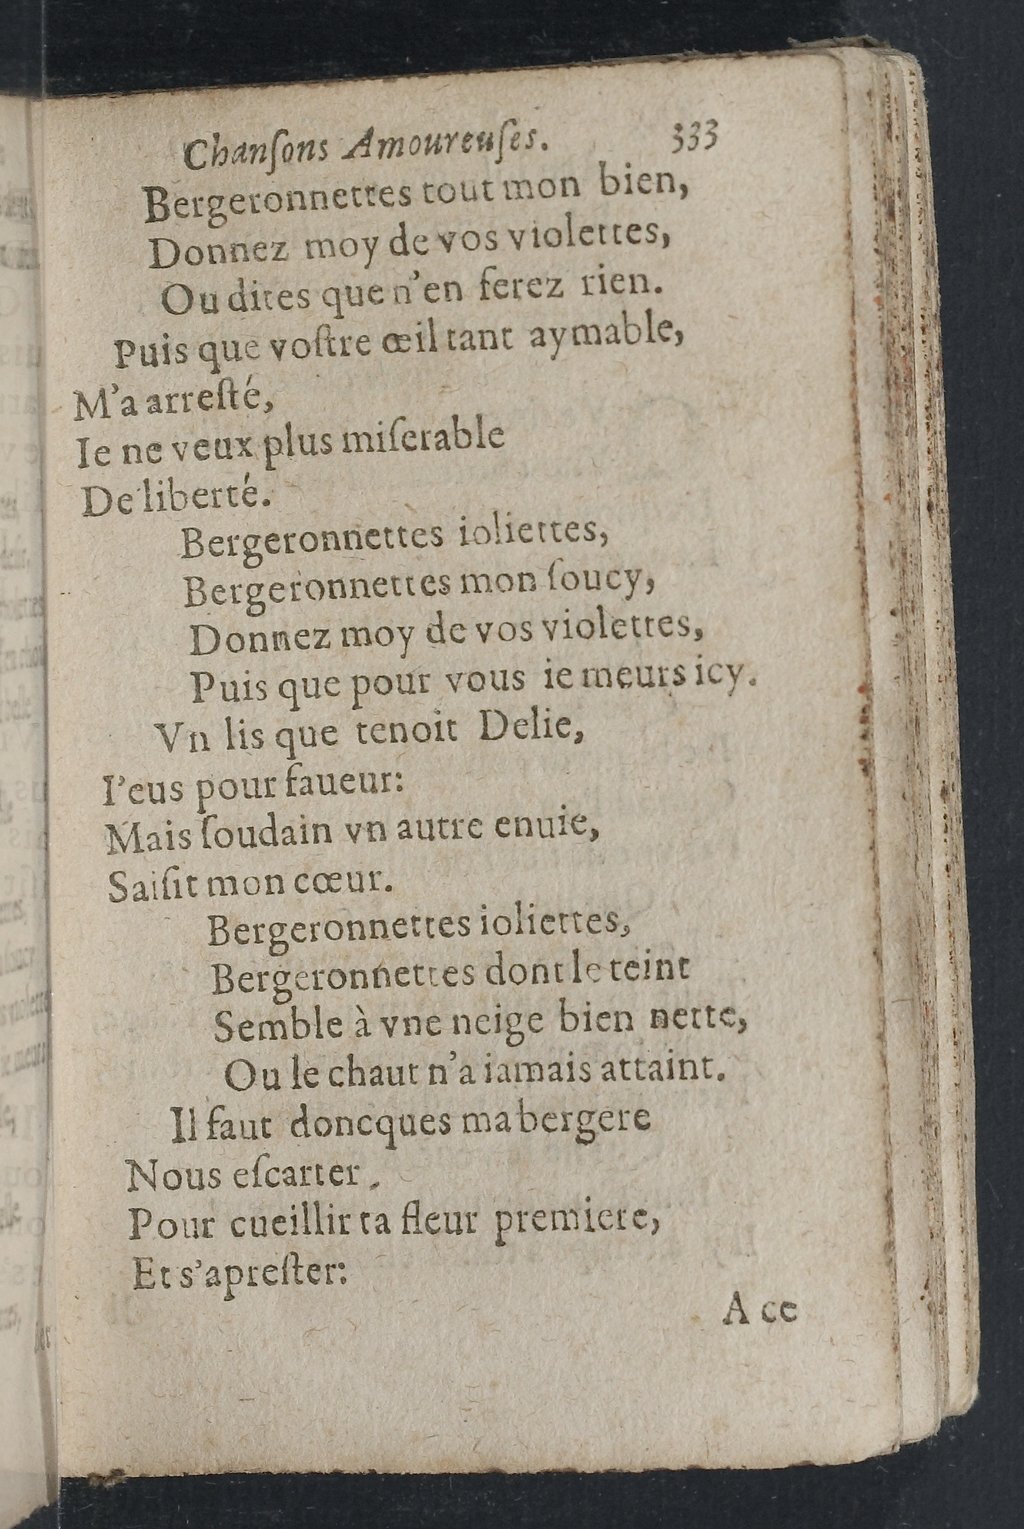 Chanſons Amoureuſes. 333
Bergeronnettes tout mon bien,
Donnez moy de vos violettes,
Ou dites que n'en ferez rien.
Puis que voſtre œil tant aymable,
M'a arreſté,
Ie ne veux plus miſerable
De liberté.
Bergeronnettes ioliettes,
Bergeronnettes mon ſoucy,
Donnez moy de vos violettes,
Puis que pour vous ie meurs icy.
Vn lis que tenoit Delie,
I'eus pour faueur:
Mais ſoudain vn autre enuie,
Saiſit mon cœur.
Bergeronnettes ioliettes,
Bergeronnettes dont le teint
Semble à vne neige bien nette,
Ou le chaut n'a iamais attaint.
Il faut doncques ma bergere
Nous eſcarter.
Pour cueillir ta fleur premiere,
Et s'apreſter:
A ce